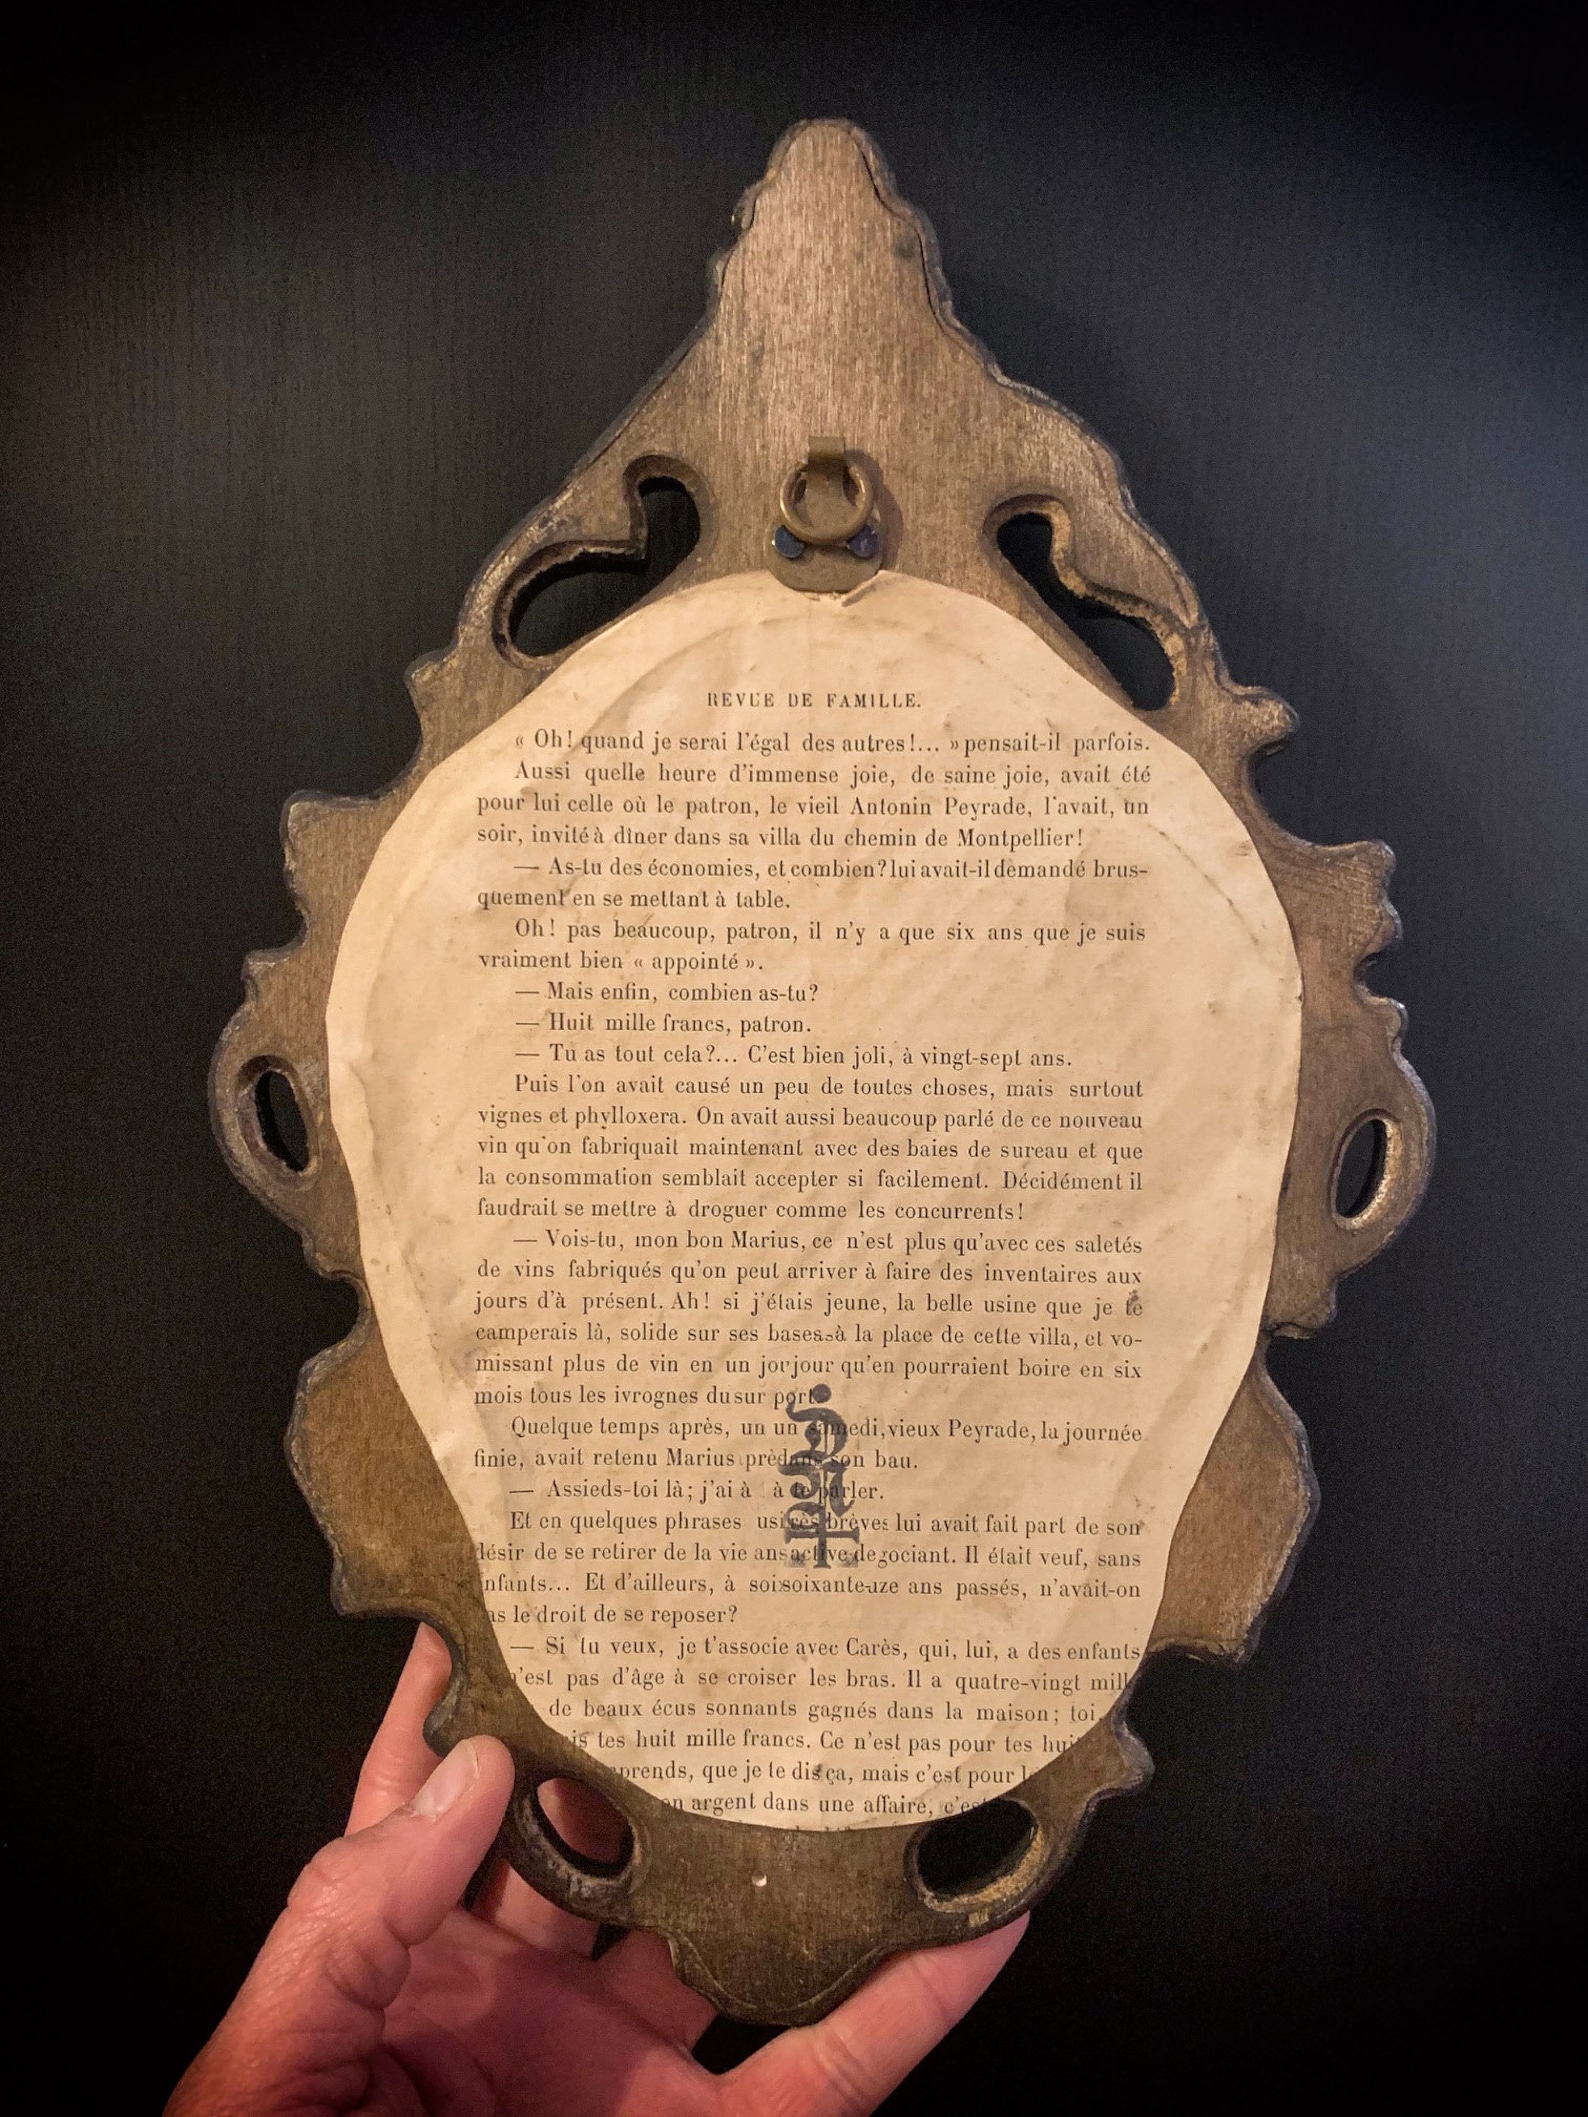 REVUE DE FAMILLE.
« Oh! quand je serai l'égal des autres!... » pensait-il parfois.
Aussi quelle heure d'immense joie, de saine joie, avait été
pour lui celle où le patron, le vieil Antonin Peyrade, l'avait, un
soir, invité à dîner dans sa villa du chemin de Montpellier!
— As-tu des économies, et combien? lui avait-il demandé brus-
quement en se mettant à table.
Oh! pas beaucoup, patron, il n'y a que six ans que je suis
vraiment bien « appointé ».
— Mais enfin, combien as-tu?
— Huit mille francs, patron.
— Tu as tout cela?... C'est bien joli, à vingt-sept ans.
Puis l'on avait causé un peu de toutes choses, mais surtout
vignes et phylloxera. On avait aussi beaucoup parlé de ce nouveau
vin qu'on fabriquait maintenant avec des baies de sureau et que
la consommation semblait accepter si facilement. Décidément il
faudrait se mettre à droguer comme les concurrents!
— Vois-tu, mon bon Marius, ce n'est plus qu'avec ces saletés
de vins fabriqués qu'on peut arriver à faire des inventaires aux
jours d'à présent. Ah! si j'étais jeune, la belle usine que je te
camperais là, solide sur ses bases à la place de cette villa, et vo-
missant plus de vin en un jour qu'en pourraient boire en six
mois tous les ivrognes du sur port
Quelque temps après, un un samedi, vieux Peyrade, la journée
finie, avait retenu Marius dans son bau.
— Assieds-toi là; j'ai à à te parler.
Et en quelques phrases brèves lui avait fait part de son
désir de se retirer de la vie active degociant. Il était veuf, sans
nfants... Et d'ailleurs, à soixante ans passés, n'avait-on
as le droit de se reposer?
— Si tu veux, je t'associe avec Carès, qui, lui, a des enfants
n'est pas d'âge à se croiser les bras. Il a quatre-vingt mill
de beaux écus sonnants gagnés dans la maison; toi,
is tes huit mille francs. Ce n'est pas pour tes hui
prends, que je te dis ça, mais c'est pour l
on argent dans une affaire, c'es